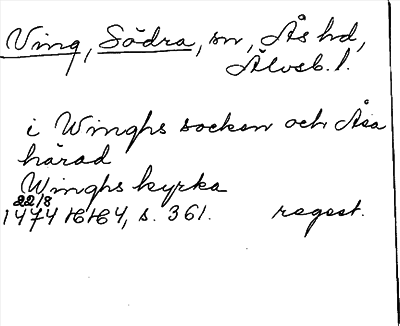 Ving, Södra, sn, Ås hd,
Älvsb. l.
i Winghs socken och Åsa
härad
Winghs kyrka
22/8
1474 HH 4, s. 361. regest.